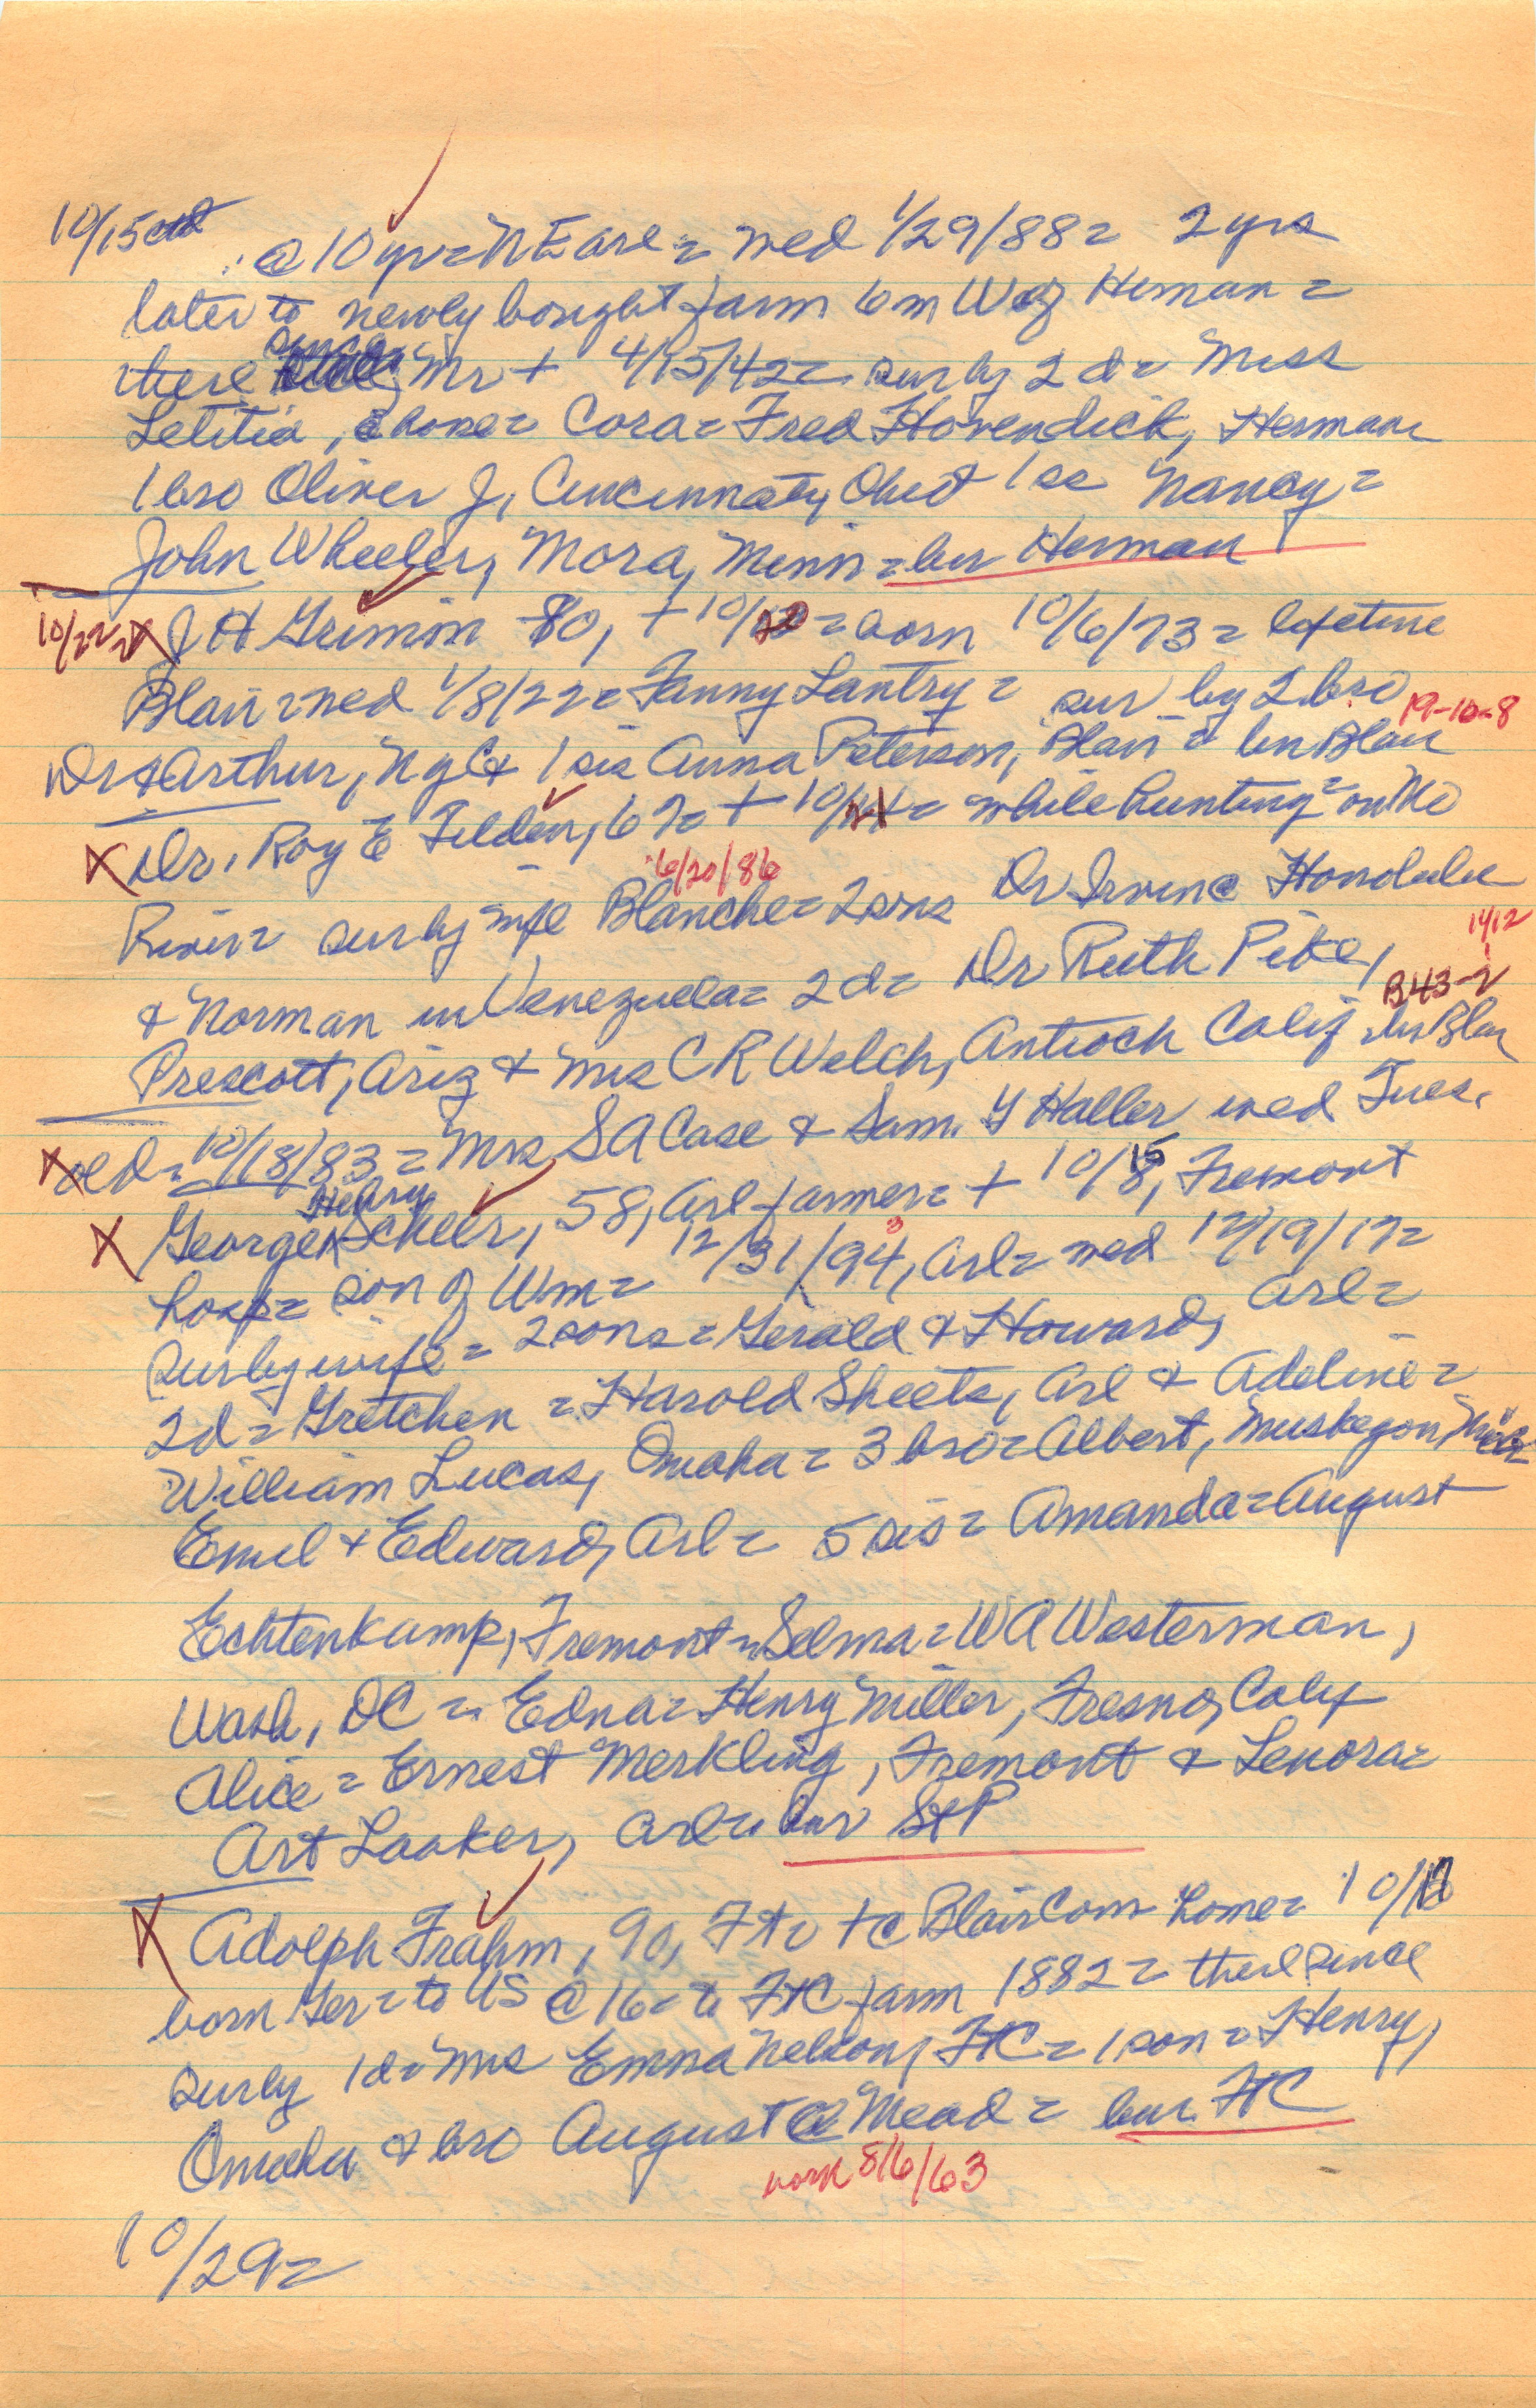 10/15 ctd
@ 10 yr = N E Arl = wed 1/29/88 = 2 yrs
later to newly bought farm 6 m W of Herman =
there since Mr + 4/15/42 = sur by 2 d = Miss
Letitia, @ home = Cora = Fred Hovendick, Herman
1 bro Oliver J, Cincinnati, Ohio & 1 sis Nancy =
John Wheeler, Mora, Minn = bur Herman
10/22 = X J H Grimm 80, + 10/20 = born 10/6/73 = lifetime
Blair = wed 1/8/22 = Fanny Lantry = sur by 2 bro
19-10-8
Dr & Arthur, NYC & 1 sis Anna Peterson, Blair = bur Blair
X Dr. Roy E Felden, 67 = + 10/21 = while hunting = on Mo
6/20/86
River = sur by wife Blanche = 2 sons Dr Irvin @ Honolulu
& Norman in Venezuela = 2 d = Dr Ruth Pike,
14/12
B43-2
Prescott, Ariz & Mrs C R Welch, Antioch Calif = bur Blair
X old = 10/18/83 = Mrs S A Case & Sam. Y Haller wed Tues.
X George Henry Scheer, 58, Arl farmer = + 10/15, Fremont
hosp = son of Wm = 12/31/94, Arl = wed 12/19/17 =
3
sur by wife = 2 sons = Gerald & Howard, Arl =
2 d = Gretchen = Harold Sheets, Arl & Adeline =
William Lucas, Omaha = 3 bro = Albert, Muskegon, Mich
Emil & Edward, Arl = 5 sis = Amanda = August
Echtenkamp, Fremont = Selma = W A Westerman,
Wash, DC = Edna = Henry Miller, Fresno, Calif
Alice = Ernest Merkling, Fremont & Lenora =
Art Laaker, Arl = bur St P
X Adolph Frahm, 90, Ft = + @ Blair Com home = 10/
born Ger = to US @ 16 = to FtC farm 1882 = there since
sur by 1 d = Mrs Emma Nelson, FtC = 1 son = Henry,
Omaha & bro August @ Mead = bur. FtC
born 8/6/63
10/29 =